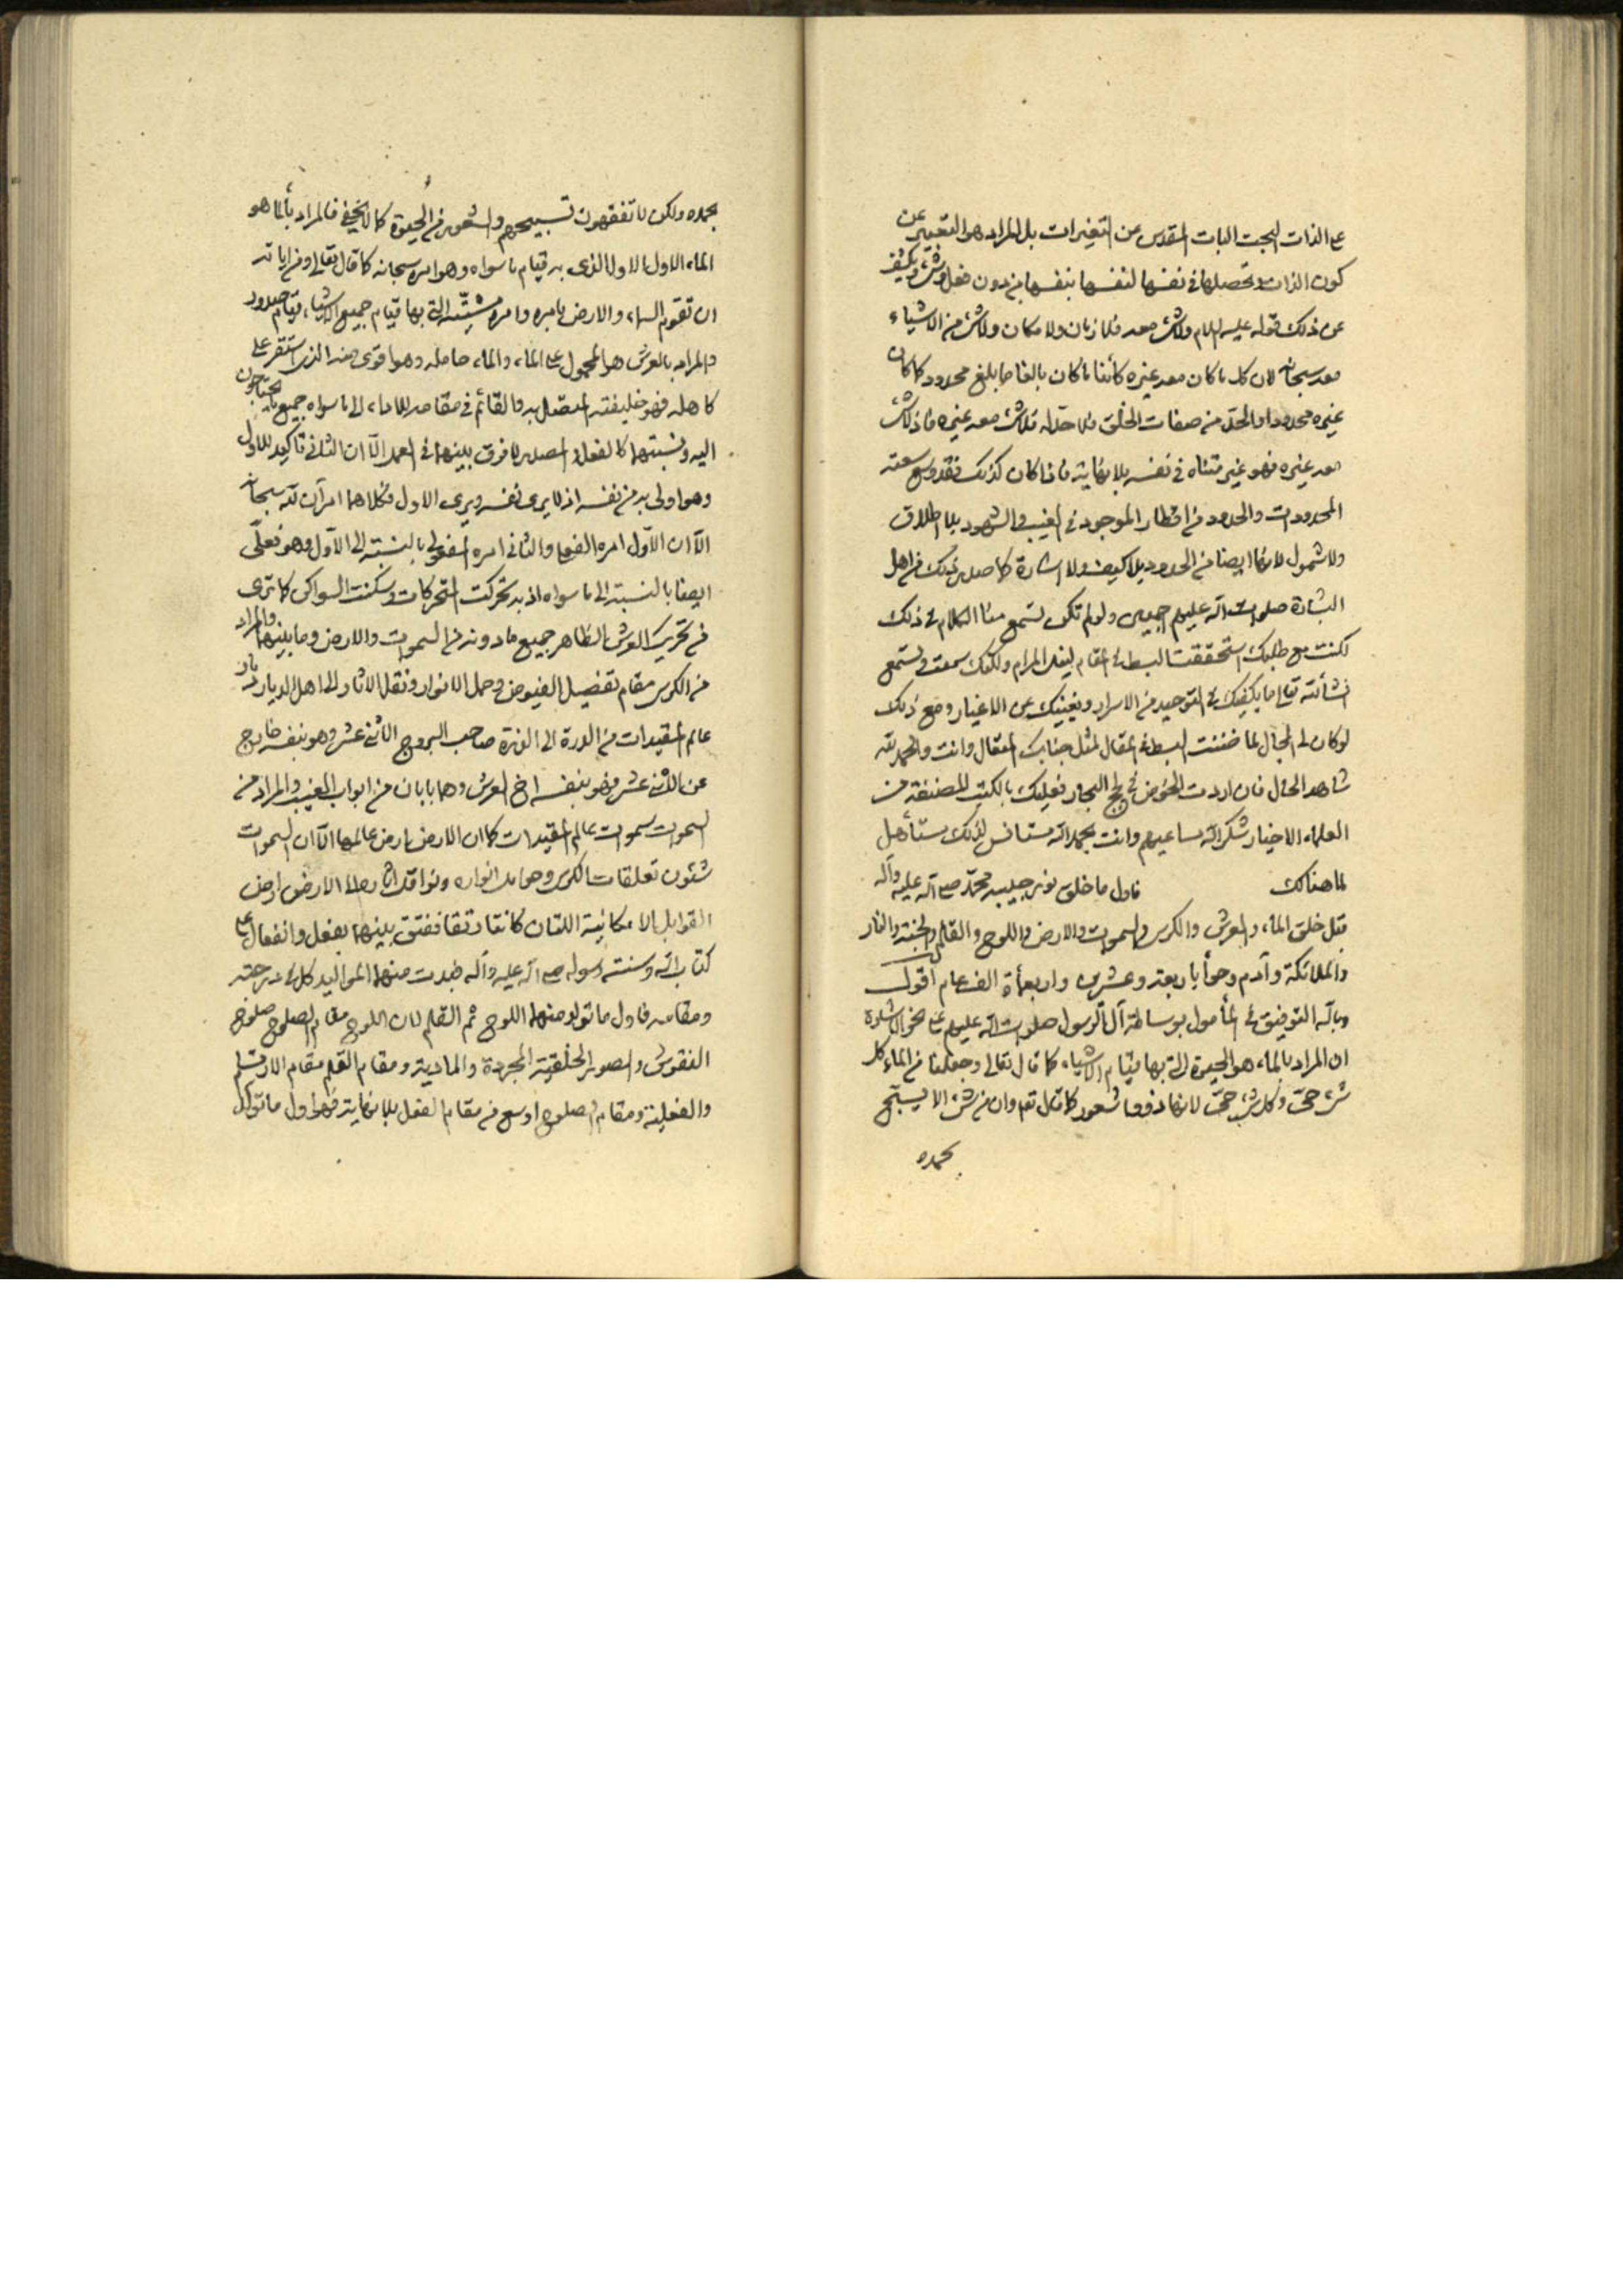 على الذات البحت البات المقدس عن التغيرات بل المراد هو التعبير عن
كون الذات وتحصلها في نفسها لنفسها بنفسها من دون فعل وشيء ويكشف
عن ذلك قوله عليه السلام ولا شيء معه فلا زمان ولا مكان ولا شيء من الاشياء
معه سبحانه لان كل ما كان معه غيره كائنا ما كان بالغا ما بلغ محدود كما كان
غيره محدودا والحد من صفات الخلق فلا حد له فلا شيء معه غيره فاذ لا شيء
معه غيره فهو غير متناه في نفسه بلا نهاية فاذا كان كذلك فقد وسع سعته
المحدودات والحدود من اقطار الموجود في الغيب والشهود بلا اطلاق
ولا شمول لانهما ايضا من الحدود بلا كيف ولا اشارة كما صدر ذلك من اهل
البشارة صلوات الله عليهم اجمعين ولو لم تكن تسمع منا الكلام في ذلك
لكنت مع طلبك استحققت البسط في المقام لنيل المرام ولكنك سمعت وتسمع
انشاء الله تعالى ما يكفيك في التوحيد من الاسرار ويغنيك عن الاغيار ومع ذلك
لو كان لي المجال لما ضننت البسط في المقال لمثل جنابك المتعال وانت والحمد لله
شاهد الحال فان اردت الخوض في لجج البحار فعليك بالكتب المصنفة من
العلماء الاخيار شكر الله مساعيهم وانت بحمد الله مستانس لذلك مستأهل
لما هنالك فاول ما خلق نور حبيبه محمد صلى الله عليه وآله
قبل خلق الماء والعرش والكرسي والسموات والارض واللوح والقلم والجنة والنار
والملائكة وآدم وحوأ باربعة وعشرين واربعمأة الف عام اقول
وبالله التوفيق في المأمول بوساطة آل الرسول صلوات الله عليهم على نحو الاشارة
ان المراد بالماء هو الحيوة التي بها قيام الاشياء كما قال تعالى وجعلنا من الماء كل
شيء حي وكل شيء حي لانها ذووا شعور كما قال تعم وان من شيء الا يسبح
بحمده
بحمده ولكن لا تفقهون تسبيحهم والشعور من الحيوة كما لا يخفى فالمراد بألماء هو
الماء الاول الاول الذي به قيام ما سواه وهو امره سبحانه كما قال تعالى ومن اياته
ان تقوم السماء والارض بامره وامره مشيته التي بها قيام جميع الاشياء قيام صدور
والمراد بالعرش هو المحمول على الماء والماء حامله وهو اقوى منه الذي استقر على
كاهله فهو خليفته المتصل به والقائم في مقامه للاداء الى ما سواه جميع ما يحتاجون
اليه ونسبتهما كالفعل والمصدر لا فرق بينهما في العمل الا ان الثاني تأكيد للاول
وهو اولى به من نفسه اذ لا يرى نفسه ويرى الاول فكلاهما امران لله سبحانه
الا ان الاول امره الفعلي والثاني امره المفعولي بالنسبة الى الاول وهو فعلي
ايضا بالنسبة الى ما سواه اذ به تحركت المتحركات وسكنت السواكن كما ترى
من تحريك العرش الظاهر جميع ما دونه من السموات والارض وما بينهما والمراد
من الكرسي مقام تفصيل الفيوض وحمل الانوار ونقل الاثار الى اهل الديار ديار
عالم التقييدات من الدرة الى الذرة صاحب البروج الاثني عشر وهو بنفسه خارج
عن الاثنى عشر فهو بنفسه اخ العرش وهما بابان من ابواب الغيب والمراد من
السموات سموات عالم التقييدات كما ان الارض ارض عالمها الا ان السموات
شئون تعلقات الكرسي وحوامل انواره ونواقل اثاره الى الارض ارض
القوابل الامكانية اللتان كانتا رتقا ففتق بينهما بفعل وانفعال على
كتاب الله وسنة رسوله صلى الله عليه وآله فبدت منهما المواليد كل في درجته
ومقامه فاول ما تولد منهما اللوح ثم القلم لان اللوح مقام الصلوح صلوح
النقوش والصور الخلقية المجردة والمادية ومقام القلم مقام الارتسام
والفعلية ومقام الصلوح اوسع من مقام الفعل بلا نهاية فهو اول ما تولد